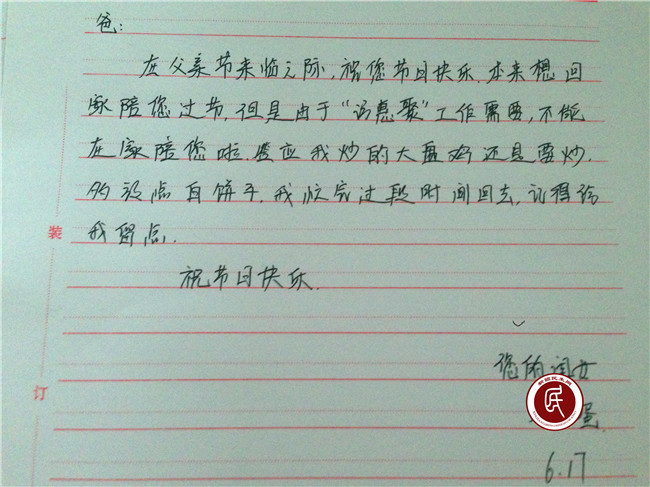 爸:
在父亲节来临之际,祝您节日快乐.本来想回
家陪您过节,但是由于“访惠聚”工作需要,不能
在家陪您啦.答应我炒的大盘鸡还是要炒.
多放点白饼子.我忙完过段时间回去,记得给
我留点.
祝节日快乐.
装
订
您的闺女
蛋.
6.17